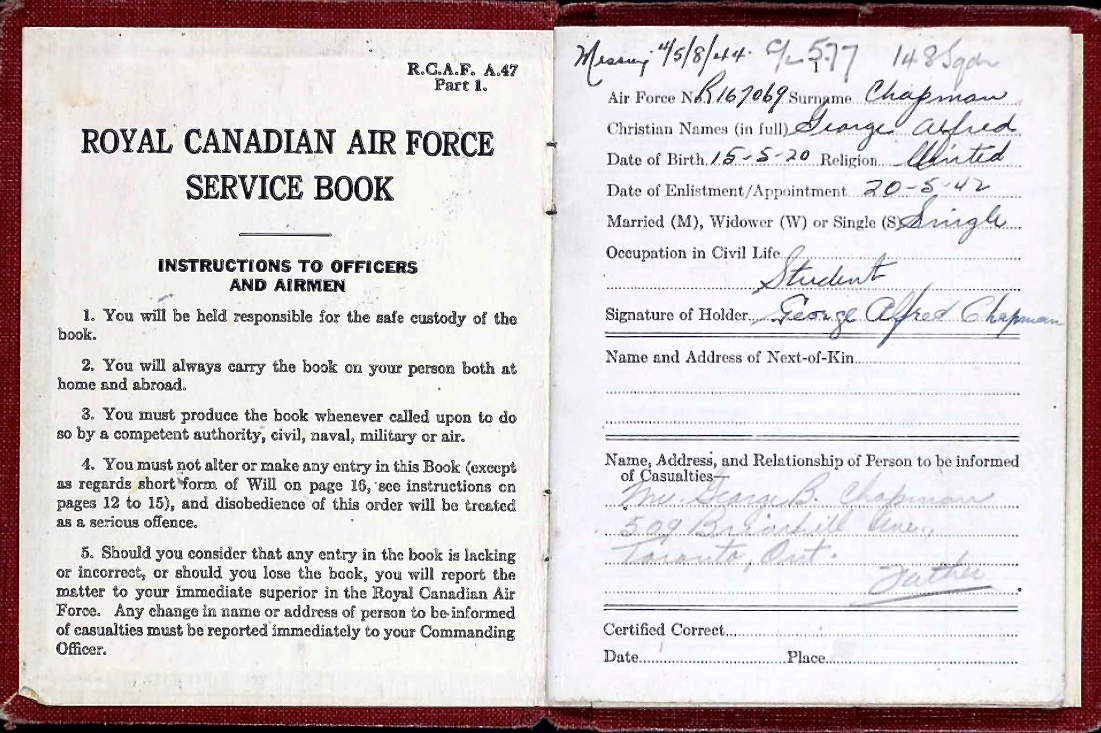 R.C.A.F. A.47
Part 1.
ROYAL CANADIAN AIR FORCE
SERVICE BOOK
INSTRUCTIONS TO OFFICERS
AND AIRMEN
1. You will be held responsible for the safe custody of the
book.
2. You will always carry the book on your person both at
home and abroad.
3. You must produce the book whenever called upon to do
so by a competent authority, civil, naval, military or air.
4. You must not alter or make any entry in this Book (except
as regards short form of Will on page 16, see instructions on
pages 12 to 15), and disobedience of this order will be treated
as a serious offence.
5. Should you consider that any entry in the book is lacking
or incorrect, or should you lose the book, you will report the
matter to your immediate superior in the Royal Canadian Air
Force. Any change in name or address of person to be informed
of casualties must be reported immediately to your Commanding
Officer.
Missing 4/5/8/44. 577 148 Sqdn
1
Air Force No. R167069 Surname Chapman
Christian Names (in full) George Alfred
Date of Birth 15-5-20 Religion United
Date of Enlistment/Appointment 20-5-42
Married (M), Widower (W) or Single (S) Single
Occupation in Civil Life
Student
Signature of Holder George Alfred Chapman
Name and Address of Next-of-Kin
Name, Address, and Relationship of Person to be informed
of Casualties—
Mr. George B. Chapman
509 Briarhill Ave.,
Toronto, Ont.
Father
Certified Correct
Date Place